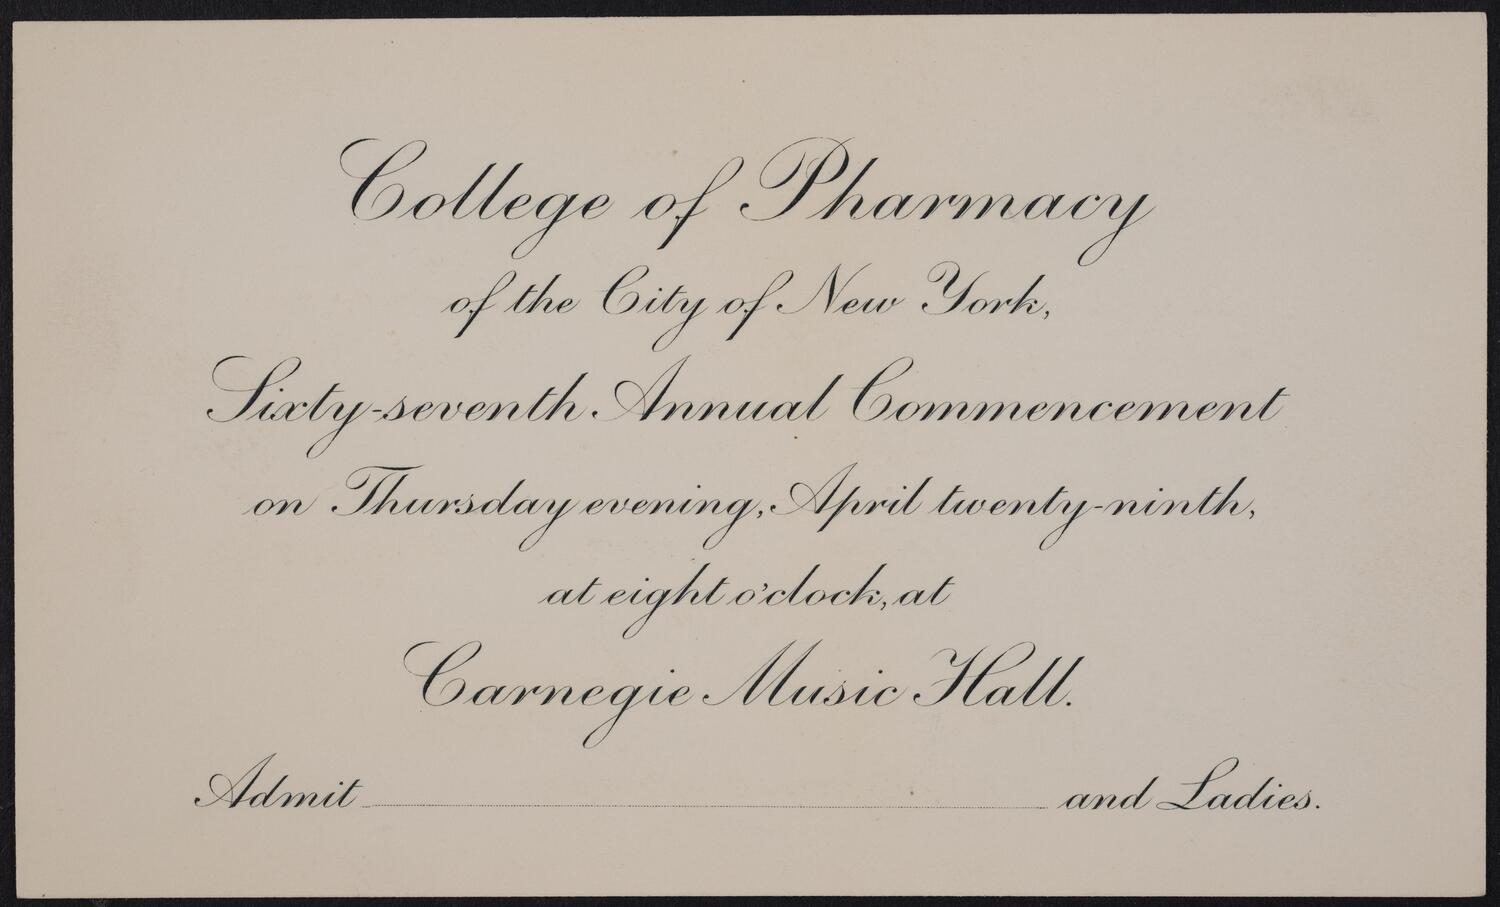 College of Pharmacy
of the City of New York,
Sixty-seventh Annual Commencement
on Thursday evening, April twenty-ninth,
at eight o'clock, at
Carnegie Music Hall.
Admit and Ladies.